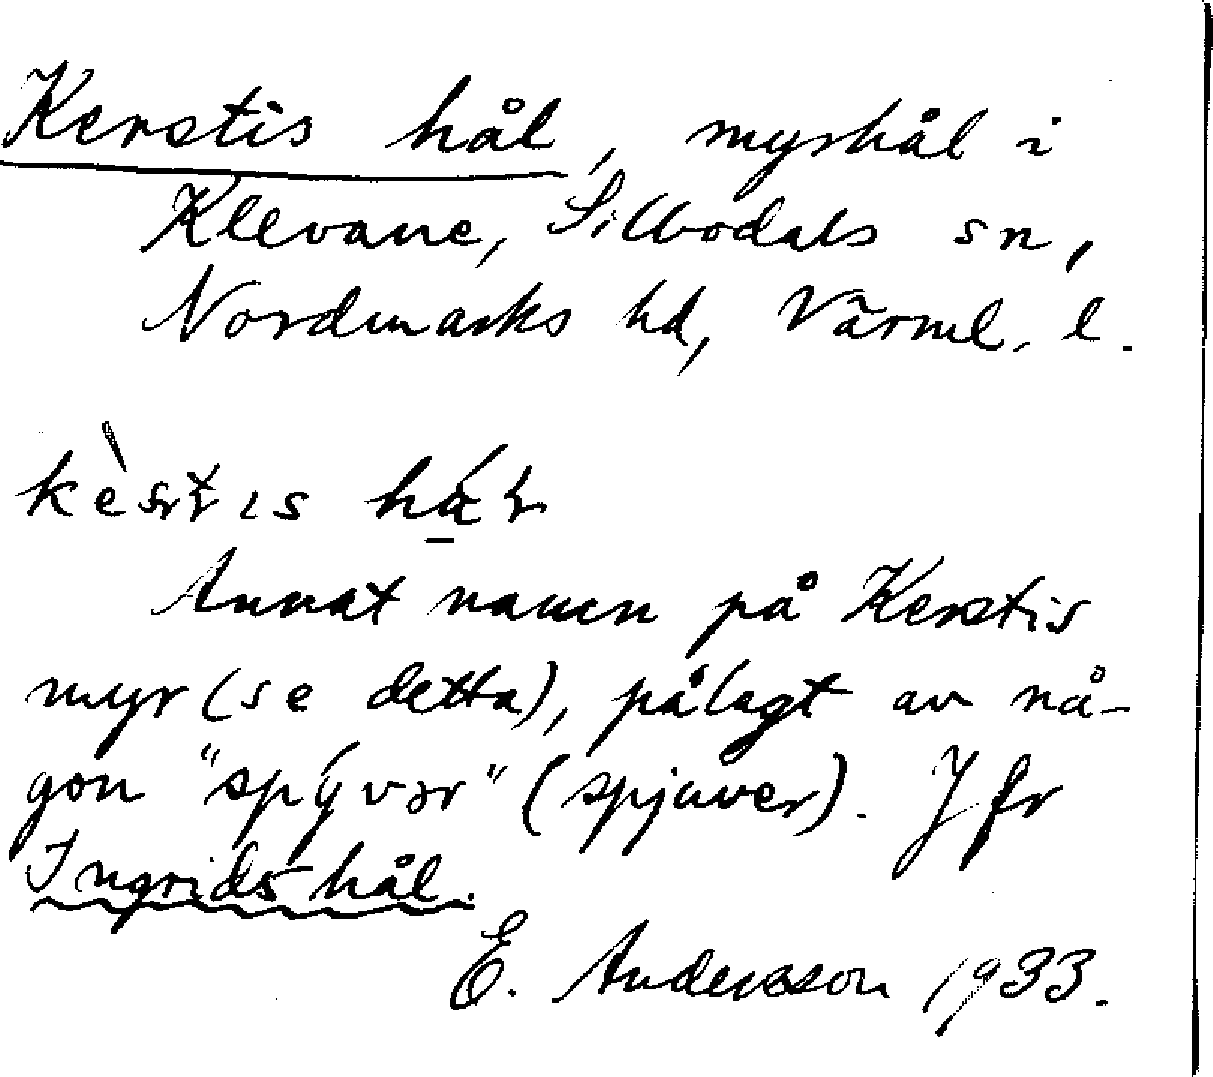 Kerstis hål, myrhål i
Klevane, Silbodals sn,
Nordmarks hd, Värml. l.
Annat namn på Kerstis
myr (se detta), pålagt av nå-
gon "spývər" (spjuver). Jfr
Ingrids hål.
E. Andersson 1933.